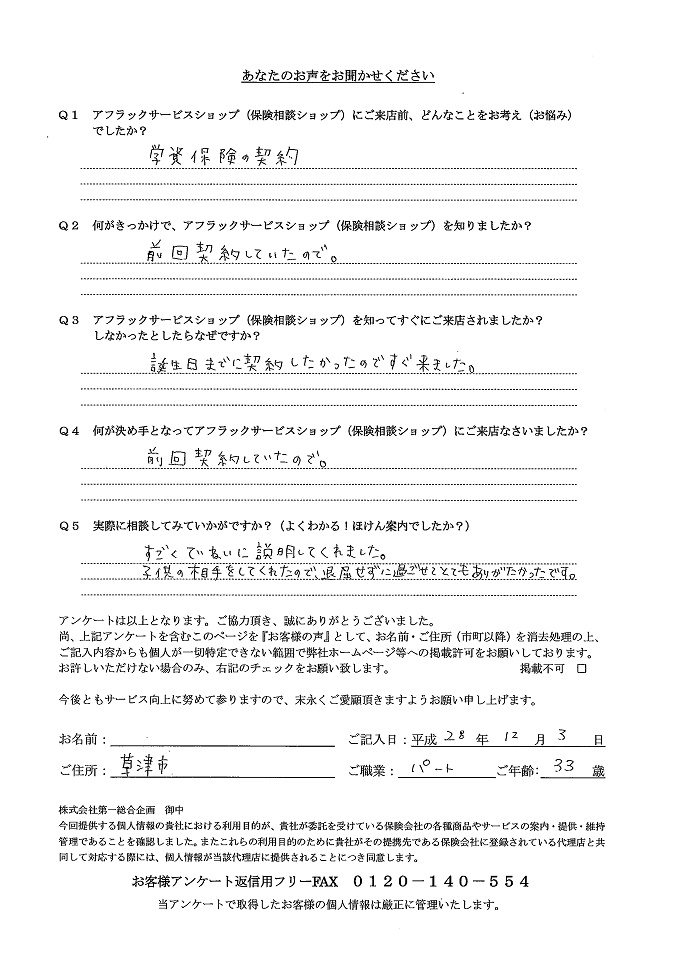 あなたのお声をお聞かせください
Q1 アフラックサービスショップ（保険相談ショップ）にご来店前、どんなことをお考え（お悩み）
でしたか？
学資保険の契約
Q2 何がきっかけで、アフラックサービスショップ（保険相談ショップ）を知りましたか？
前回契約していたので。
Q3 アフラックサービスショップ（保険相談ショップ）を知ってすぐにご来店されましたか？
しなかったとしたらなぜですか？
誕生日までに契約したかったのですぐ来ました。
Q4 何が決め手となってアフラックサービスショップ（保険相談ショップ）にご来店なさいましたか？
前回契約していたので。
Q5 実際に相談してみていかがですか？（よくわかる！ほけん案内でしたか？）
すごくていねいに説明してくれました。
子供の相手をしてくれたので、退屈せずに過ごせてとてもありがたかったです。
アンケートは以上となります。ご協力頂き、誠にありがとうございました。
尚、上記アンケートを含むこのページを『お客様の声』として、お名前・ご住所（市町以降）を消去処理の上、
ご記入内容からも個人が一切特定できない範囲で弊社ホームページ等への掲載許可をお願いしております。
お許しいただけない場合のみ、右記のチェックをお願い致します。 掲載不可 □
今後ともサービス向上に努めて参りますので、末永くご愛顧頂きますようお願い申し上げます。
お名前： ご記入日：平成 28 年 12 月 3 日
ご住所： 草津市 ご職業： パート ご年齢： 33 歳
株式会社第一総合企画 御中
今回提供する個人情報の貴社における利用目的が、貴社が委託を受けている保険会社の各種商品やサービスの案内・提供・維持
管理であることを確認しました。またこれらの利用目的のために貴社がその提携先である保険会社に登録されている代理店と共
同して対応する際には、個人情報が当該代理店に提供されることにつき同意します。
お客様アンケート返信用フリーFAX ０１２０－１４０－５５４
当アンケートで取得したお客様の個人情報は厳正に管理いたします。